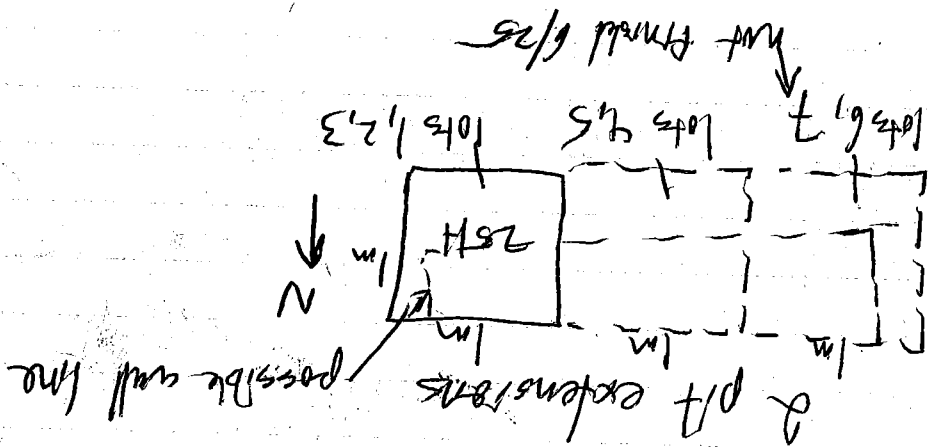 2 pit extensions
possible wall line
1m
1m
1m
N
1m
lots 1, 2, 3
lots 4, 5
lots 6, 7
not finished 6/25